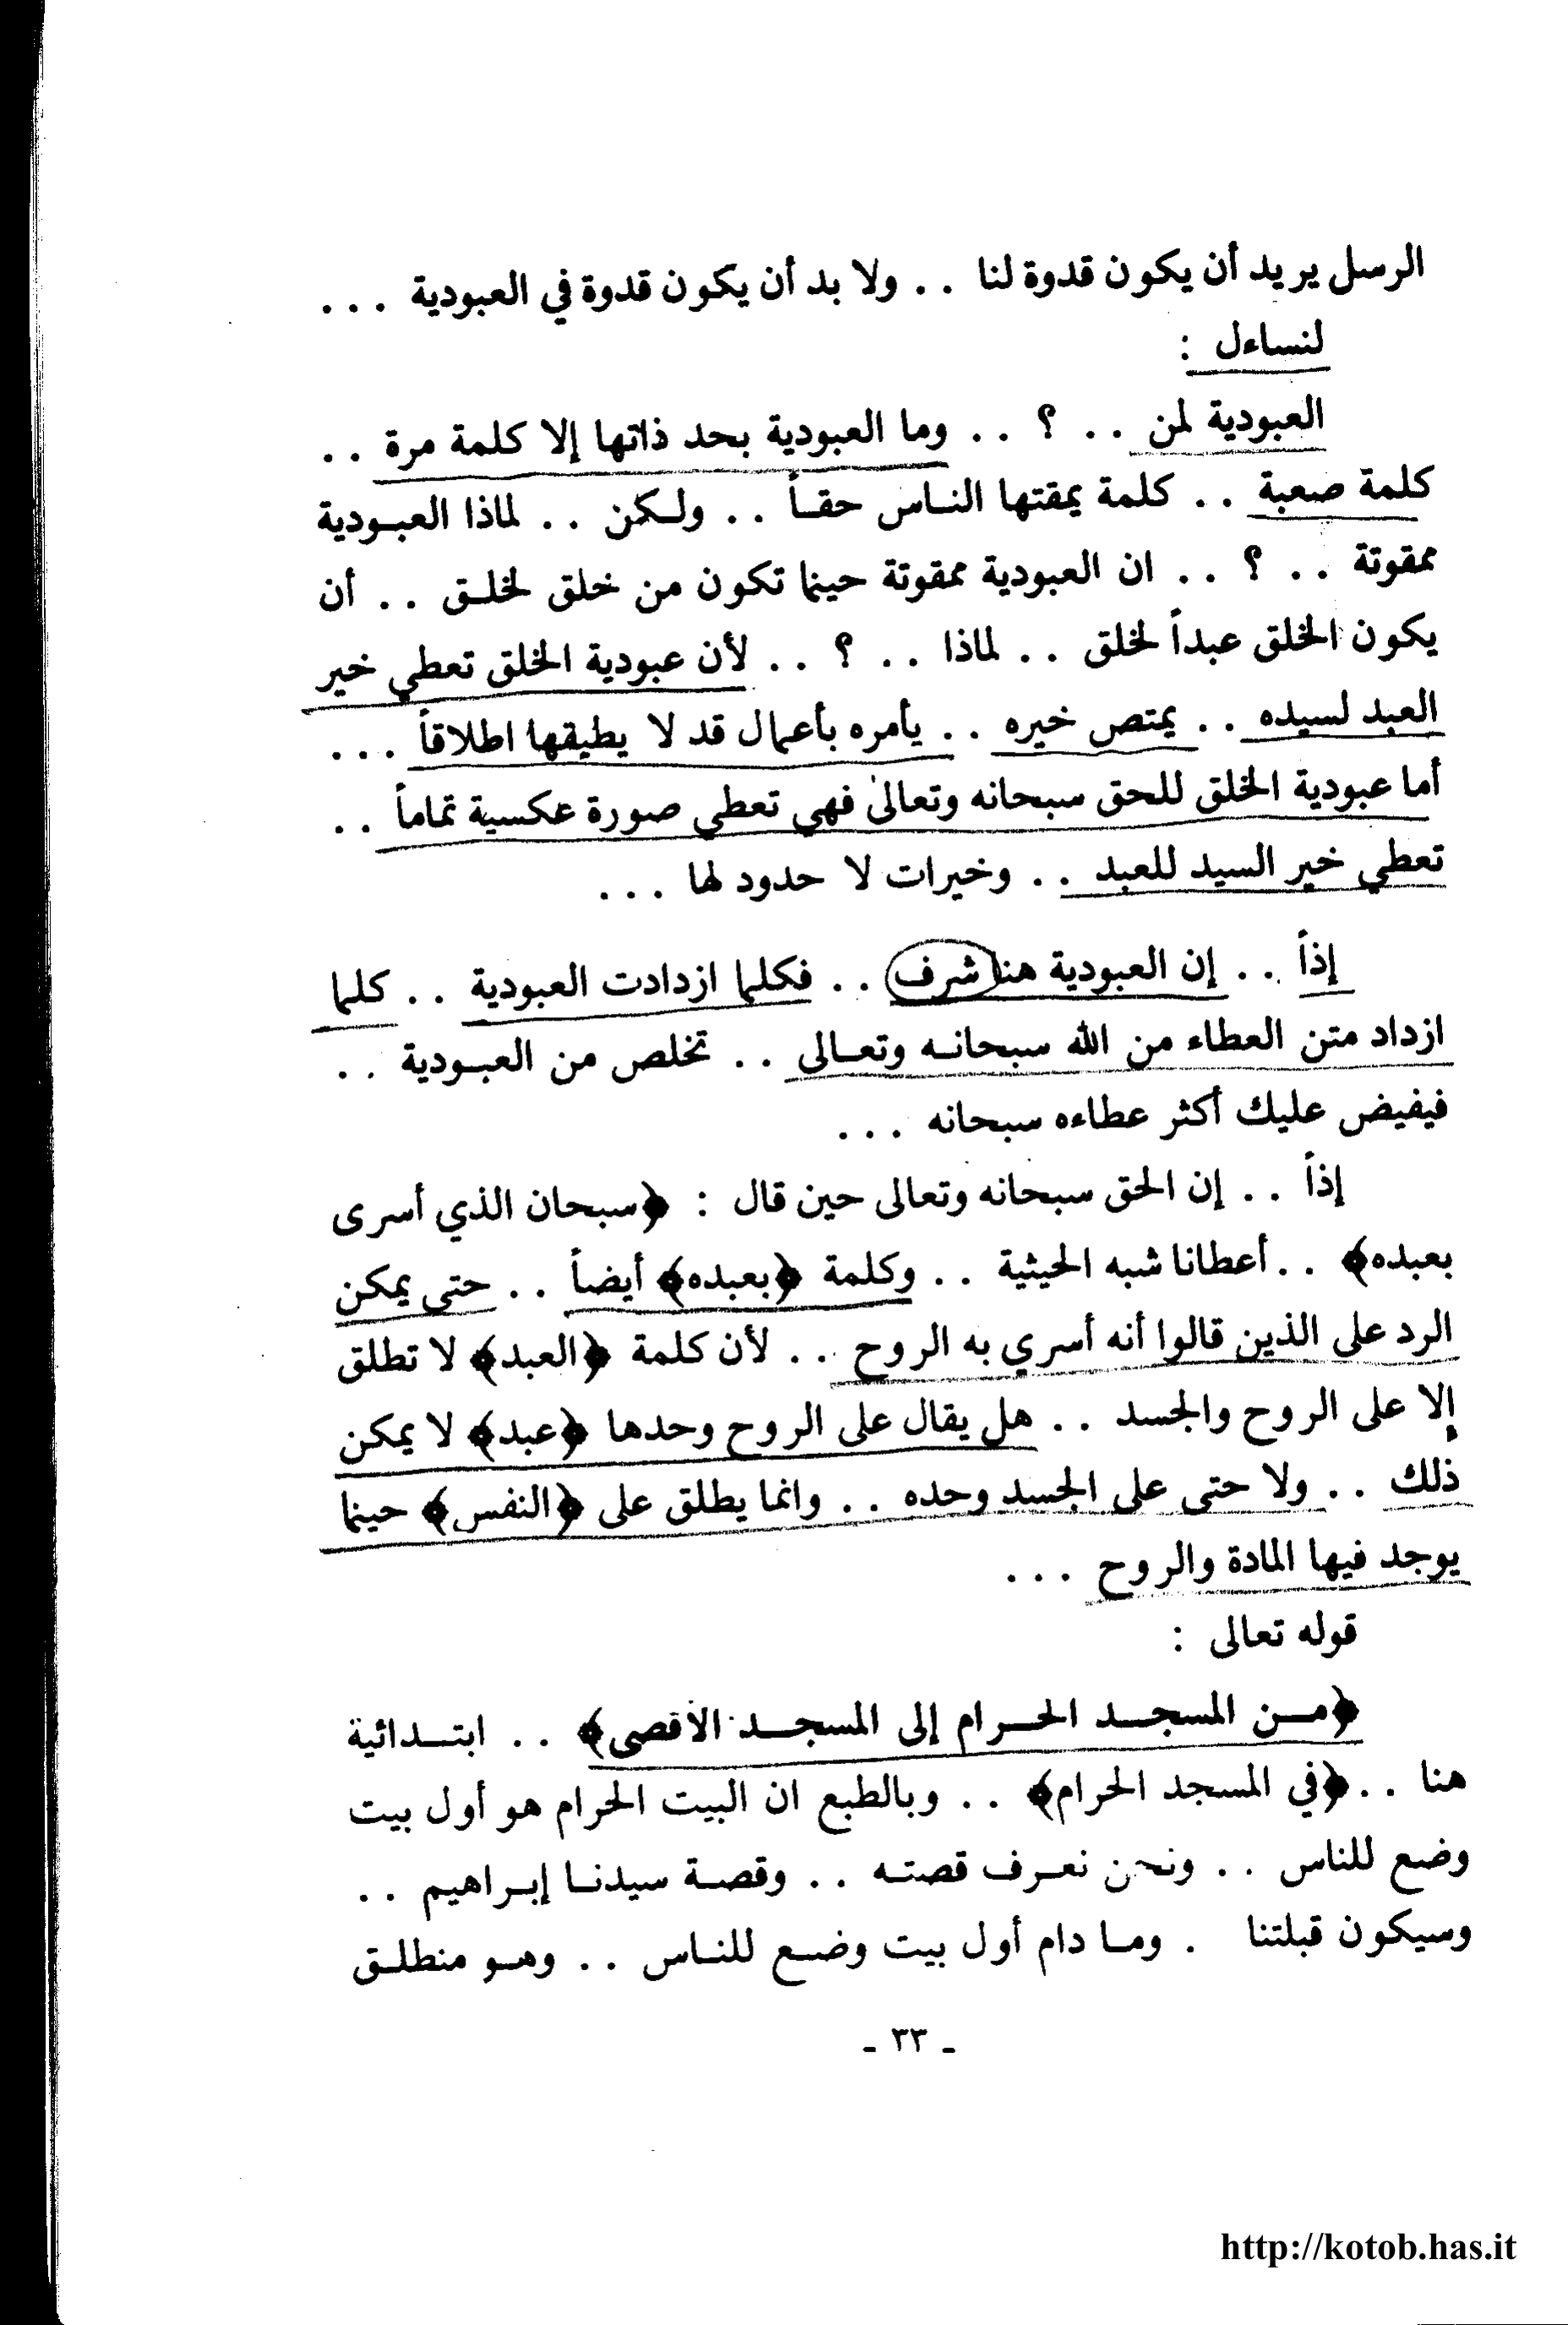 الرسل يريد أن يكون قدوة لنا . . ولا بد أن يكون قدوة في العبودية . . .
لنساءل :
العبودية لمن . . ؟ . . وما العبودية بحد ذاتها إلا كلمة مرة . .
كلمة صعبة . . كلمة يمقتها الناس حقاً . . ولكن . . لماذا العبودية
ممقوتة . . ؟ . . ان العبودية ممقوتة حينما تكون من خلق لخلق . . أن
يكون الخلق عبداً لخلق . . لماذا . . ؟ . . لأن عبودية الخلق تعطي خير
العبد لسيده . . يمتص خيره . . يأمره بأعمال قد لا يطيقها اطلاقاً . . .
أما عبودية الخلق للحق سبحانه وتعالى فهي تعطي صورة عكسية تماماً . .
تعطي خير السيد للعبد . . وخيرات لا حدود لها . . .
إذاً . . إن العبودية هنا شرف . . فكلما ازدادت العبودية . . كلما
ازداد متن العطاء من الله سبحانه وتعالى . . تخلص من العبودية . .
فيفيض عليك أكثر عطاءه سبحانه . . .
إذاً . . إن الحق سبحانه وتعالى حين قال : ﴿سبحان الذي أسرى
بعبده﴾ . . أعطانا شبه الحيثية . . وكلمة ﴿بعبده﴾ أيضاً . . حتى يمكن
الرد على الذين قالوا أنه أسري به الروح . . لأن كلمة ﴿العبد﴾ لا تطلق
إلا على الروح والجسد . . هل يقال على الروح وحدها ﴿عبد﴾ لا يمكن
ذلك . . ولا حتى على الجسد وحده . . وانما يطلق على ﴿النفس﴾ حينما
يوجد فيها المادة والروح . . .
قوله تعالى :
﴿من المسجد الحرام إلى المسجد الأقصى﴾ . . ابتدائية
هنا . . ﴿في المسجد الحرام﴾ . . وبالطبع ان البيت الحرام هو أول بيت
وضع للناس . . ونحن نعرف قصته . . وقصة سيدنا إبراهيم . .
وسيكون قبلتنا . وما دام أول بيت وضع للناس . . وهو منطلق
ـ ٣٣ ـ
http://kotob.has.it